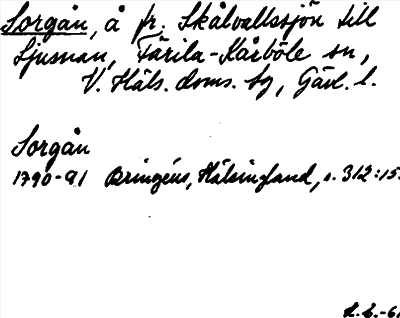 Sorgån, å fr. Skålvallssjön till
Ljusnan, Färila-Kårböle sn,
V. Häls. doms. sg, Gävl. l.
Sorgån
1790-91 Bringéus, Hälsingland, s. 312:15.
L.L.-61